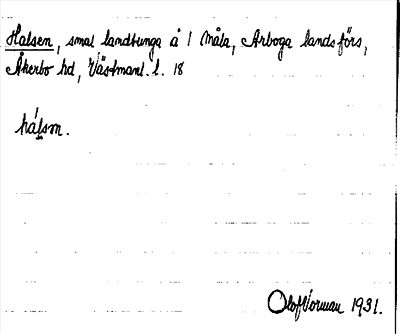 Halsen, smal landtunga å 1 Måla, Arboga landsförs,
Åkerbo hd, Västmanl. l. 18
hálsɷn.
Olof Vorman 1931.